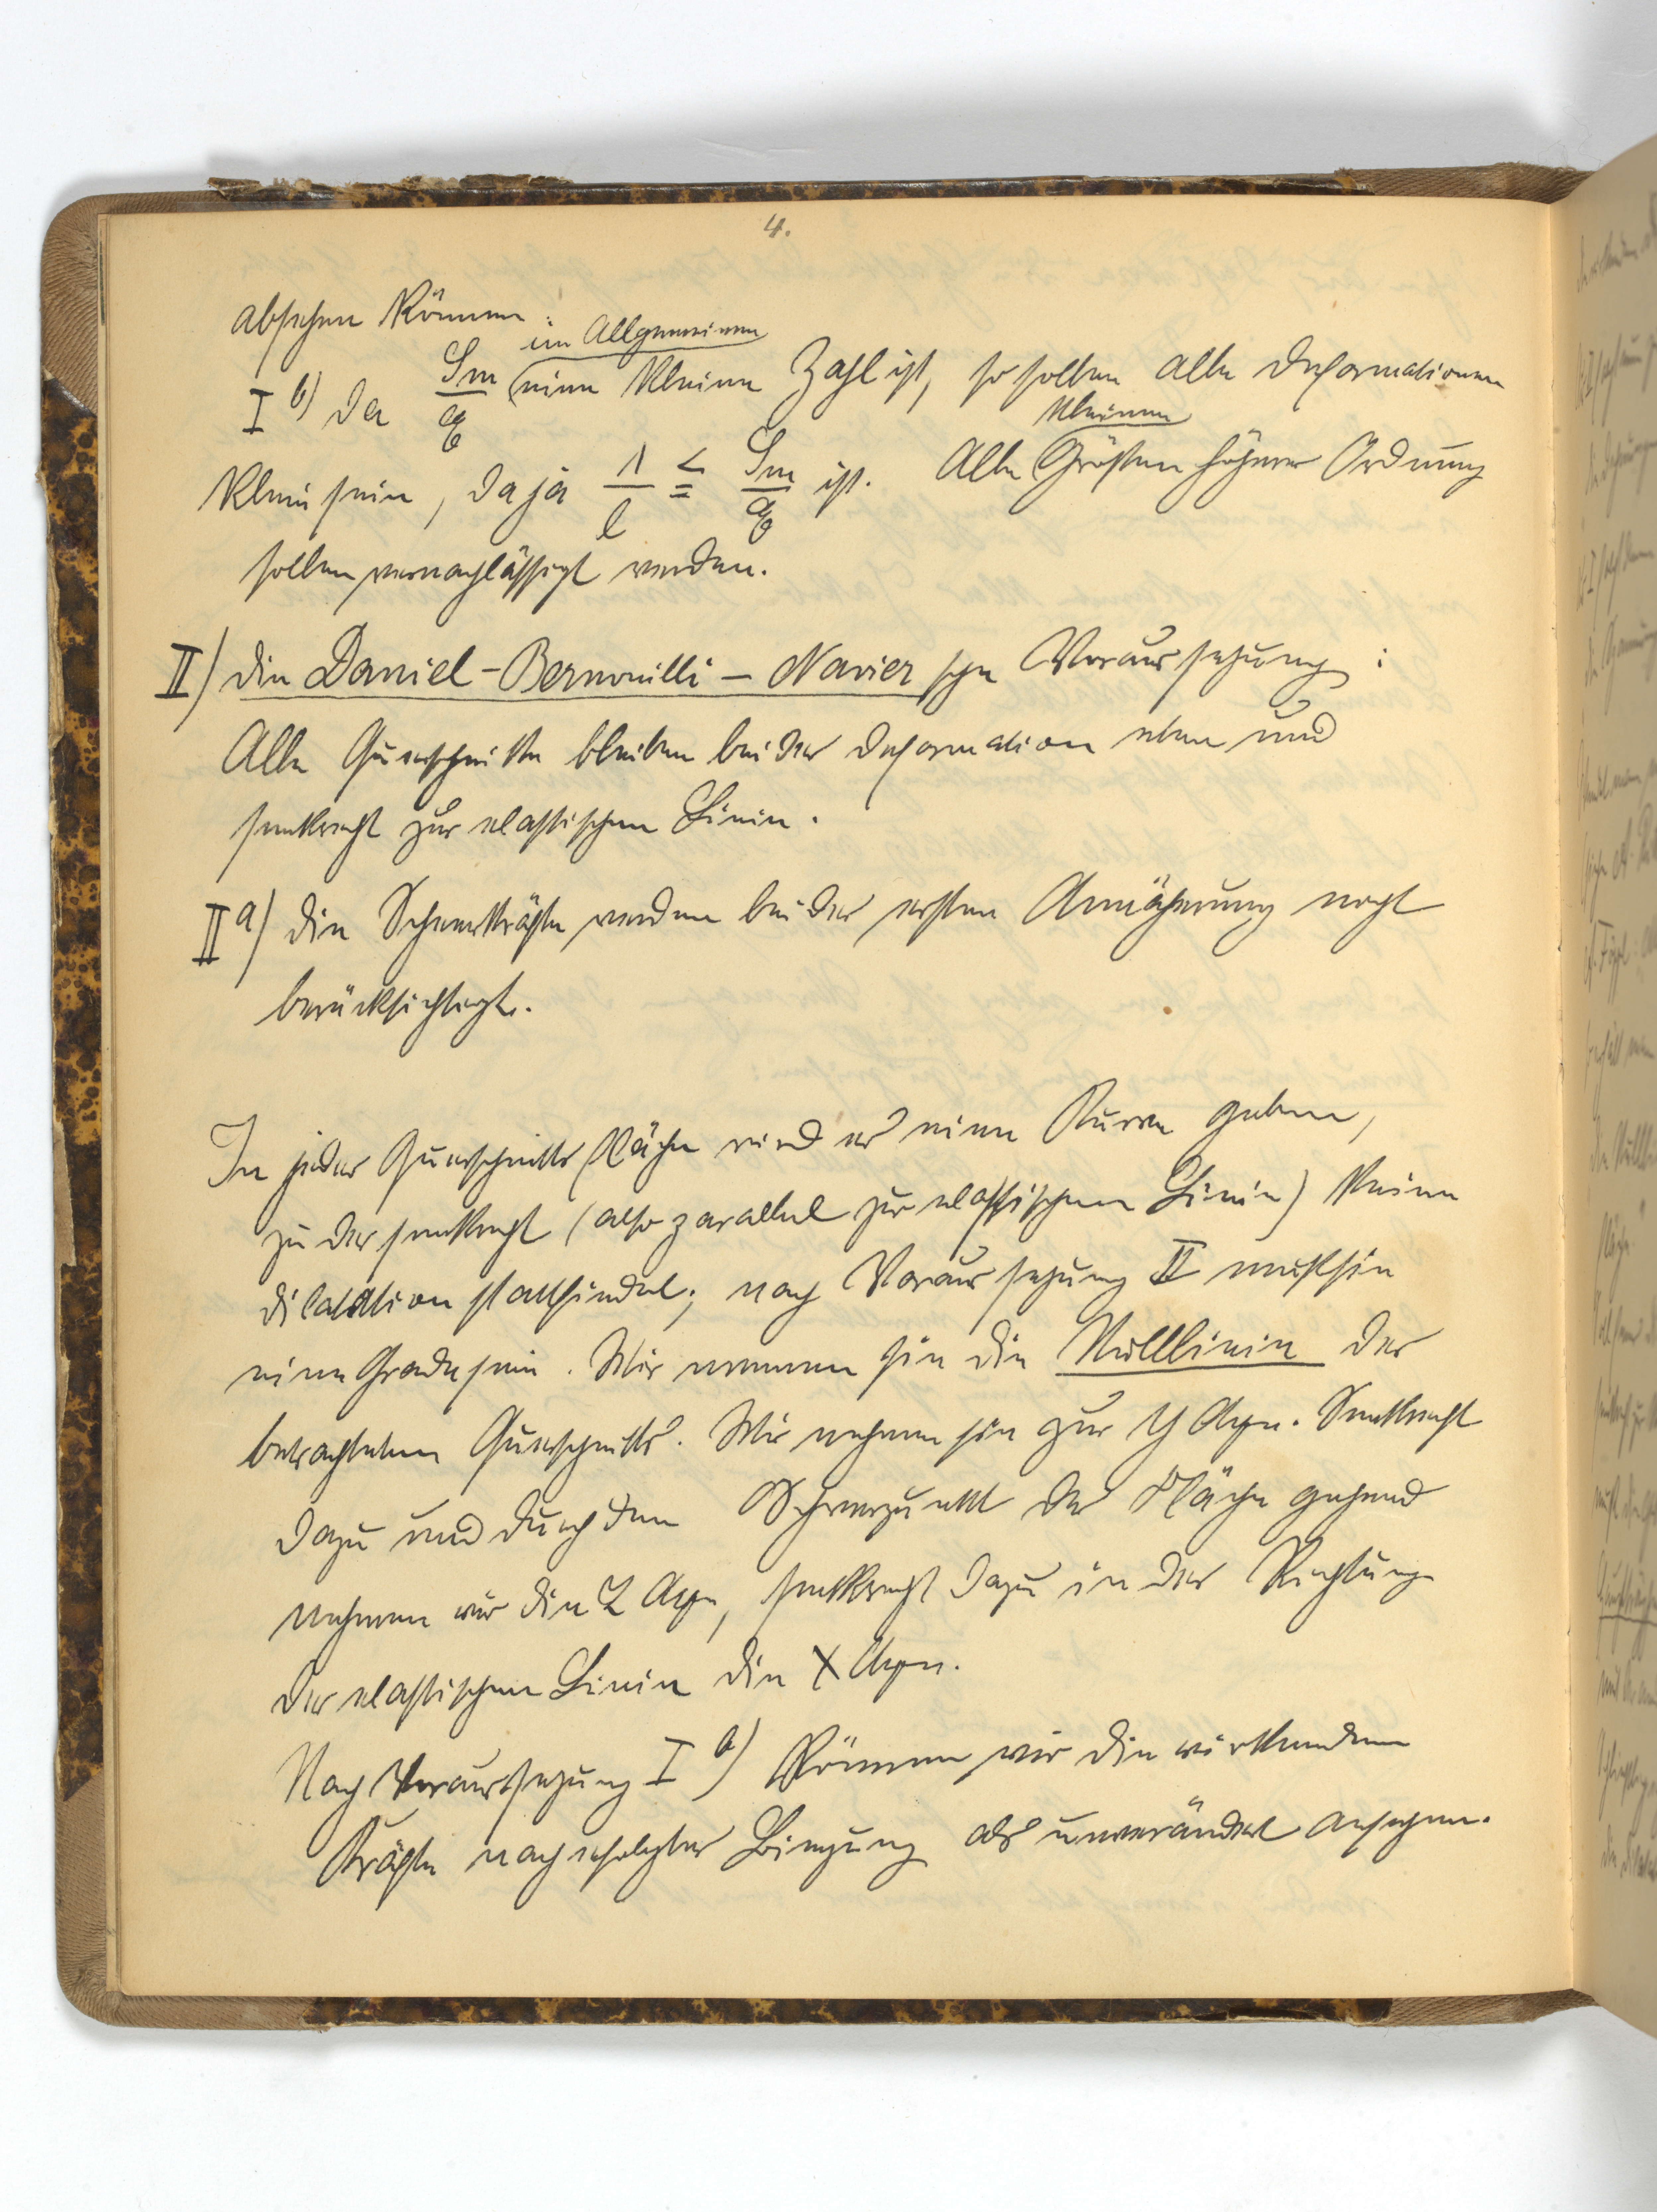 4.
absehen können:
im Allgemeinen
I b) Da Sm/E eine kleine Zahl ist, so sollen alle Deformationen
kleinen
klein sein, da ja Λ/l ≤ Sm/E ist. Alle Größen höherer Ordnung
sollen vernachlässigt werden.
II) Die Daniel-Bernouilli-Navier sche Voraussetzung:
Alle Querschnitte bleiben bei der Deformation eben und
senkrecht zur elastischen Linie.
II a) Die Scheerkräfte werden bei der ersten Annäherung nicht
berücksichtigt.
In jeder Querschnittsfläche wird es eine Kurve geben,
zu der senkrecht (also parallel zur elastischen Linie) keine
Dilatation stattfindet; nach Voraussetzung II muß sie
eine Grade sein. Wir nennen sie die Nulllinie des
betrachteten Querschnitts. Wir nehmen sie zur Y Axe. Senkrecht
dazu und durch den Schwerpunkt der Fläche gehend
nehmen wir die Z Axe, senkrecht dazu in der Richtung
der elastischen Linie die X Axe.
Nach Voraussetzung I b) können wir die wirkenden
Kräfte nach erfolgter Biegung als unverändert ansehen.